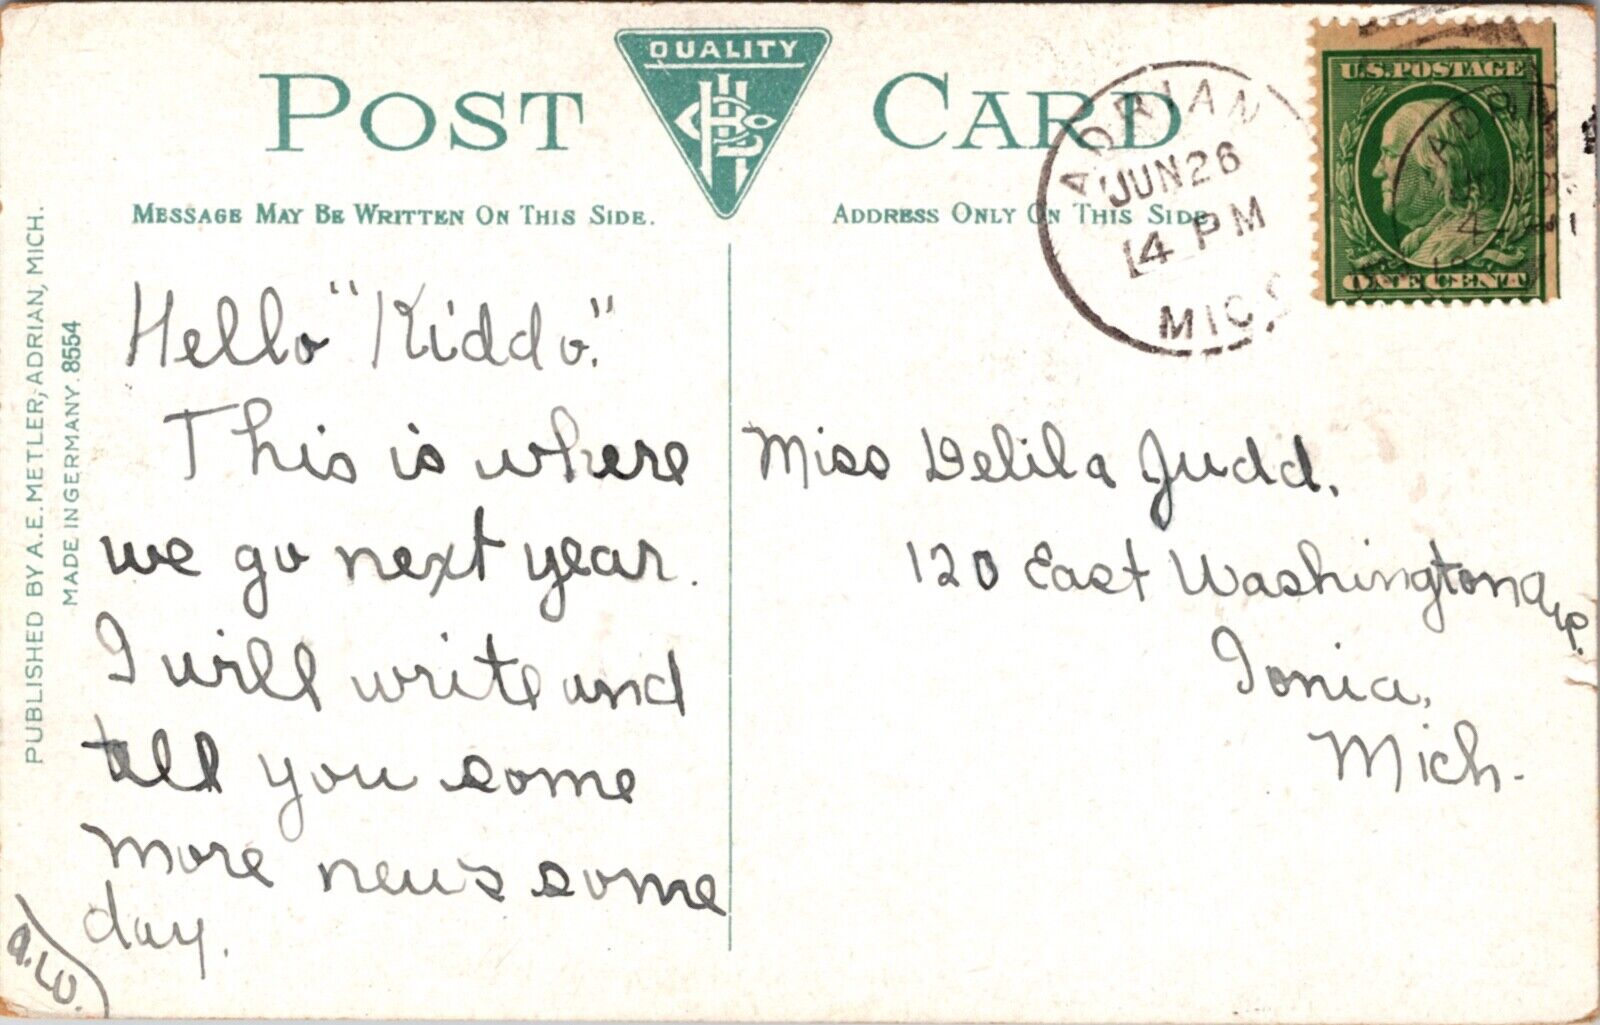 POST CARD
QUALITY
MESSAGE MAY BE WRITTEN ON THIS SIDE.
ADDRESS ONLY ON THIS SIDE
PUBLISHED BY A.E. METLER, ADRIAN, MICH.
MADE IN GERMANY. 8554
ADRIAN
JUN 26
4 PM
MICH
U.S. POSTAGE
ONE CENT
Hello "Kiddo."
This is where
we go next year.
I will write and
tell you some
more news some
day.
a.w.
Miss Delila Judd,
120 East Washington
Ionia,
Mich.